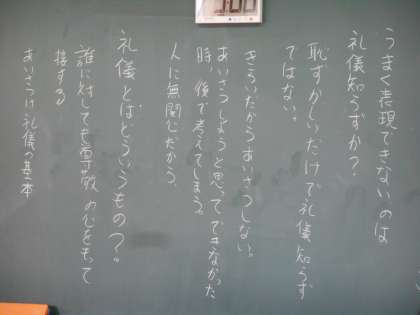 うまく表現できないのは
礼儀知らずか？
恥ずかしいだけで礼儀知らず
ではない。
きらいだからあいさつしない。
あいさつしようと思ってできなかった
時、後で考えてしまう。
人に無関心だから、
礼儀とはどういうもの？。
誰に対しても尊敬の心をもって
接する
あいさつは礼儀の基本